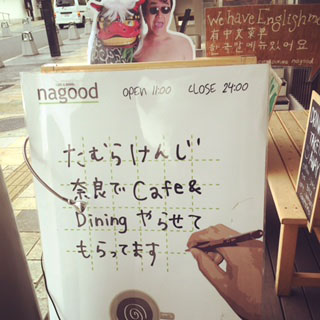 We have English me
有中文菜单
한국말 메뉴 있어요
nagood
OPEN 11:00 CLOSE 24:00
たむらけんじ
奈良で Cafe &
Dining やらせて
もらってます